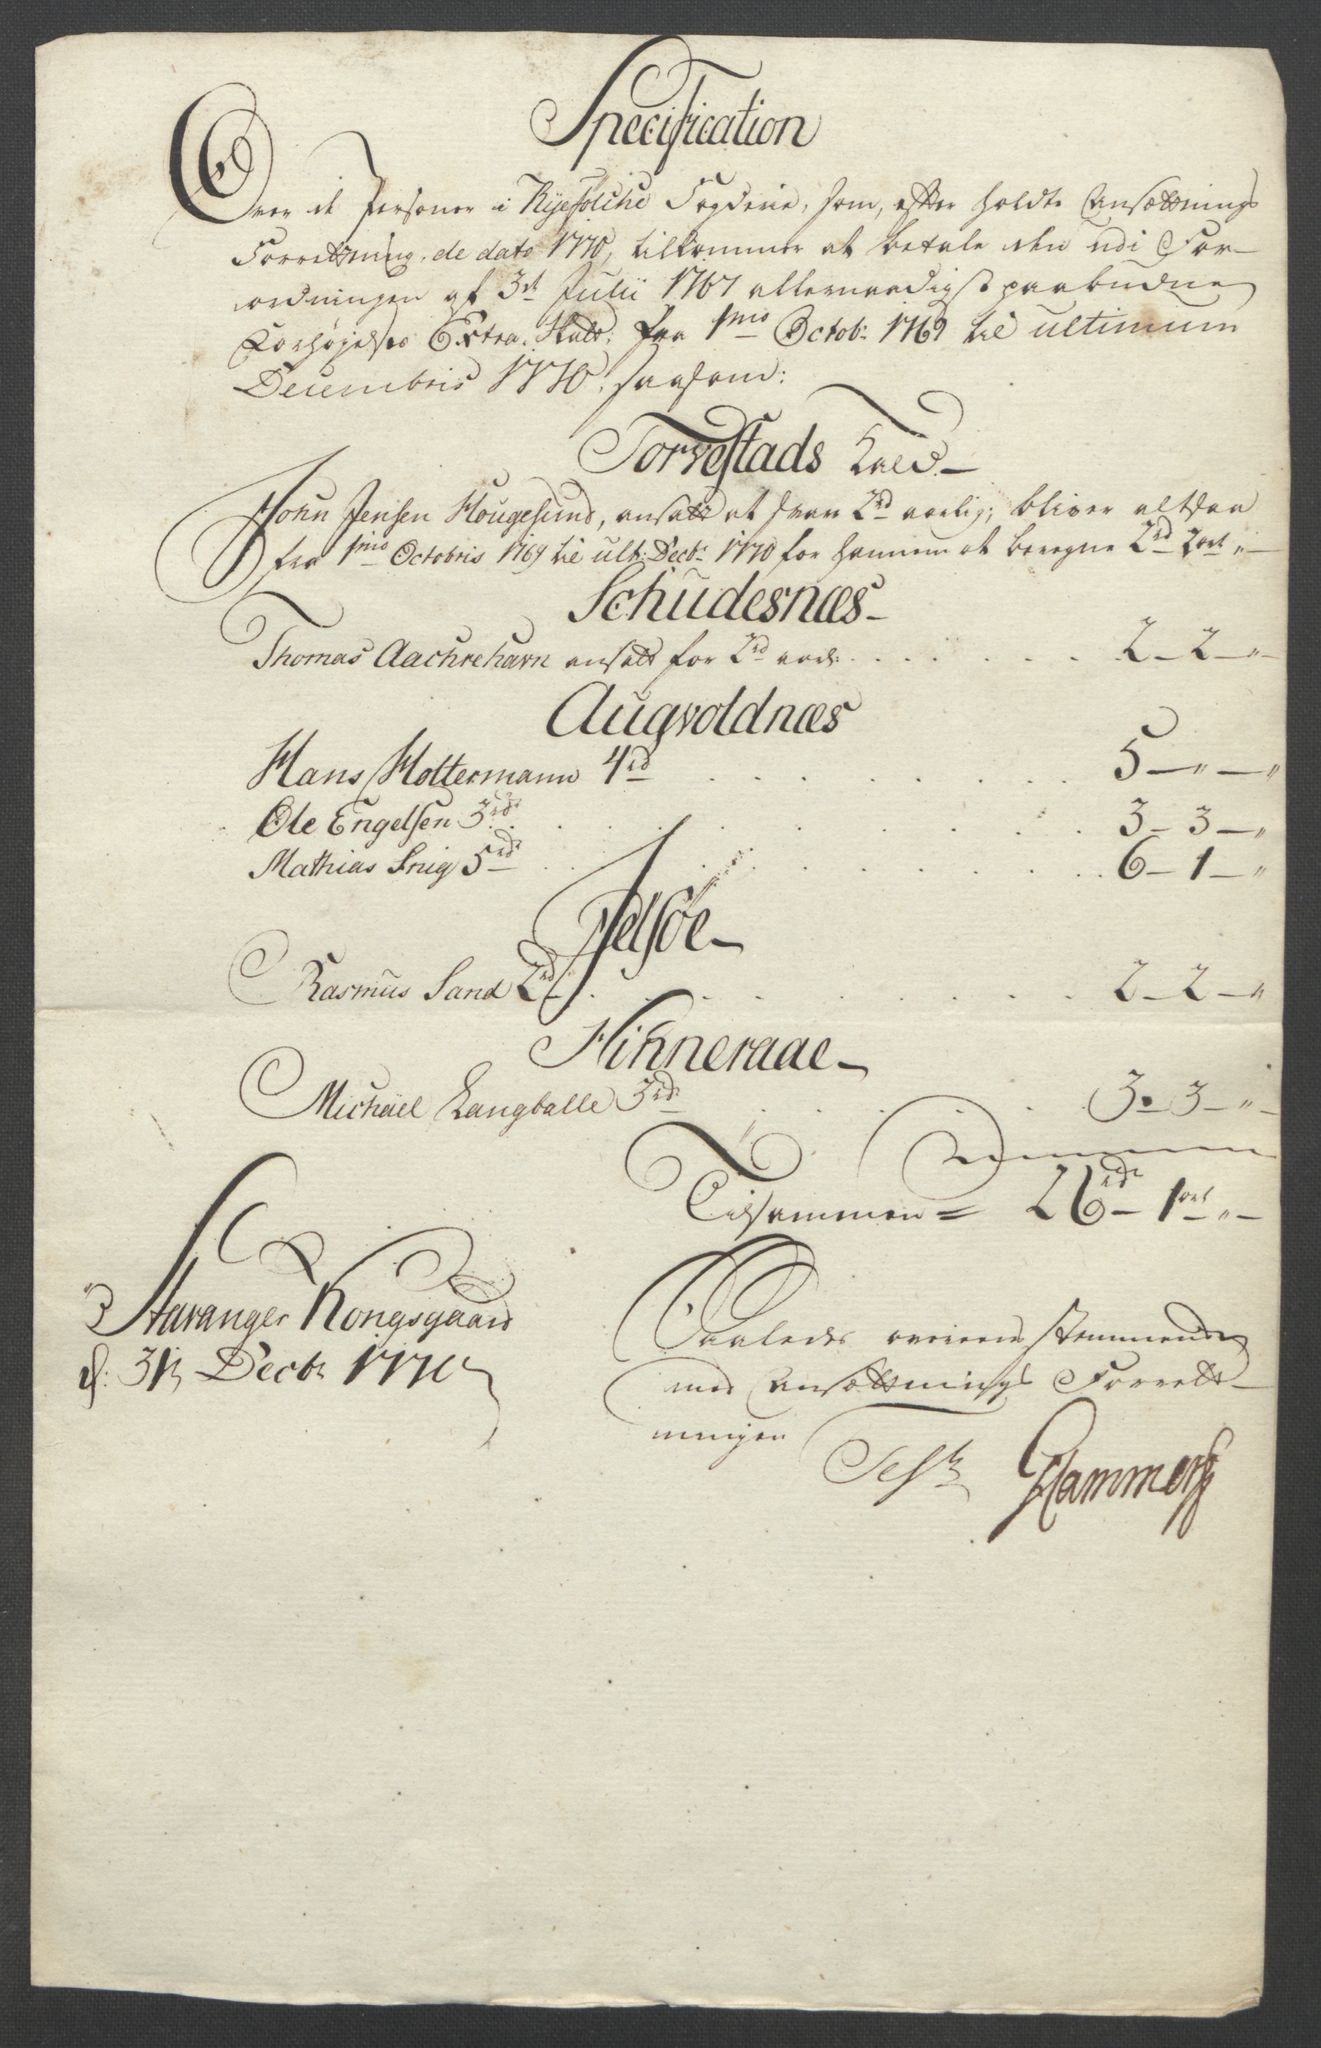 Specification
Over de Personer i Ryefølche Fogderie, som, efter holdte Ansættnings
Forrettning, de dato 1770, tilkommer at betale den udi For-
ordningen af 3de Julii 1767 allernaadigst paabudne
Forhøjelses Extra-Skatt, fra 1mo Octobr 1769 til ultimum
Decembris 1770, saasom:
Torvestads Kald.
John Jensen Hougesund, ansatt at svare 2rd aarlig; bliver altsaa
fra 1mo Octobris 1769 til ult: Decbr 1770 for hannem at beregne 2rd 2ort „
Schudesnæs
Thomas Aachrehavn ansatt for 2rd aarl: . . . . . . 2 - 2 - „
Augvoldnæs
Hans Holtermann 4rd . . . . . . 5 - „ - „
Ole Engelsen 3rdr . . . . . . 3 - 3 - „
Mathias Snig 5rdr . . . . . . 6 - 1 - „
Jelsøe
Rasmus Sand 2rd . . . . . . 2 - 2 - „
Hinneraae
Michael Langballe 3rdr . . . . . . 3 - 3 - „
Tilsammen = 26rdr - 1ort „
Stavanger Kongsgaard
d: 31te Decbr 1770
Saaledes overeensstemmende
med Ansættnings Forrett-
ningen
Test:
Hammer